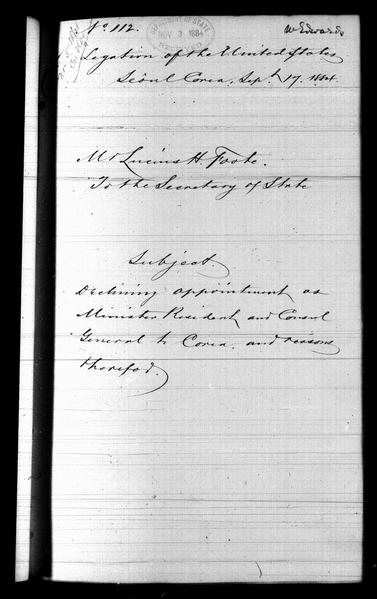 No 112.
DEPARTMENT OF STATE
NOV 3 1884
W Edwards
Legation of the United States
Seoul Corea, Sept 17. 1884.
Mr Lucius H. Foote.
To the Secretary of State
Subject.
Declining appointment as
Minister Resident, and Consul
General to Corea, and reasons
therefor.